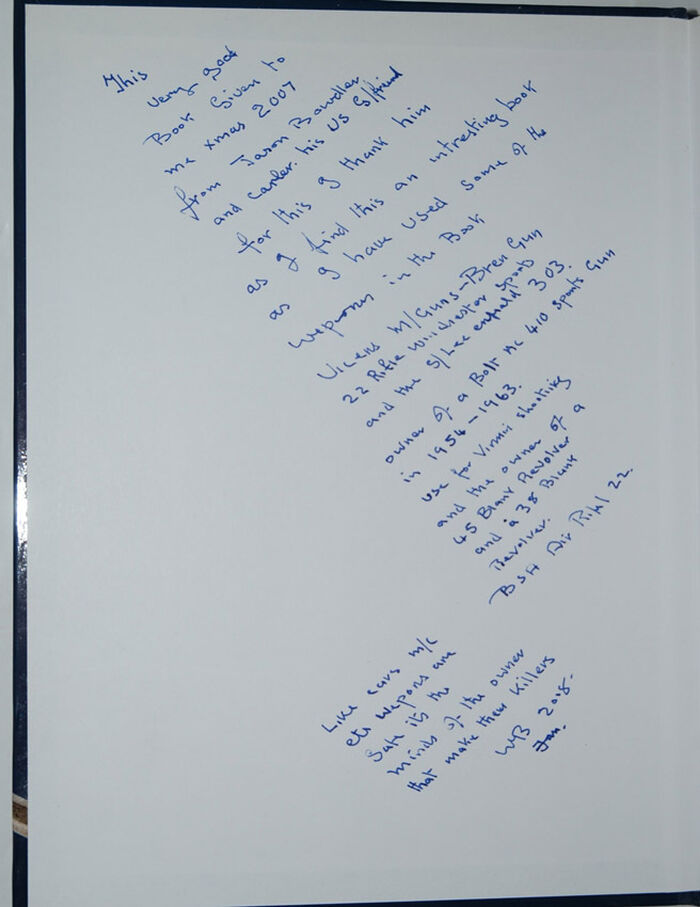 This
very good
Book Given to
me xmas 2007
from Jason Bowdler
and his US G/friend
for this I thank him
as I find this an intresting book
as I have used some of the
wepons in the Book
Vicens M/Guns-Bren Gun
22 Rifle Winchester sports
and the S/Lee enfield 303.
owner of a Bolt Ac 410 sports Gun
in 1954-1963.
use for Virmin shooting
and the owner of a
45 Blank Revolver
and a 38 Blank
Revolver.
BSA Air Rifl 22.
Like cars m/c
etc wepons are
Safe its the
minds of the owner
that make them Killers
WB 2008.
Jan.